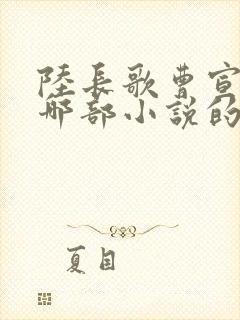 陸長歌曹宣
哪部小說的
夏目